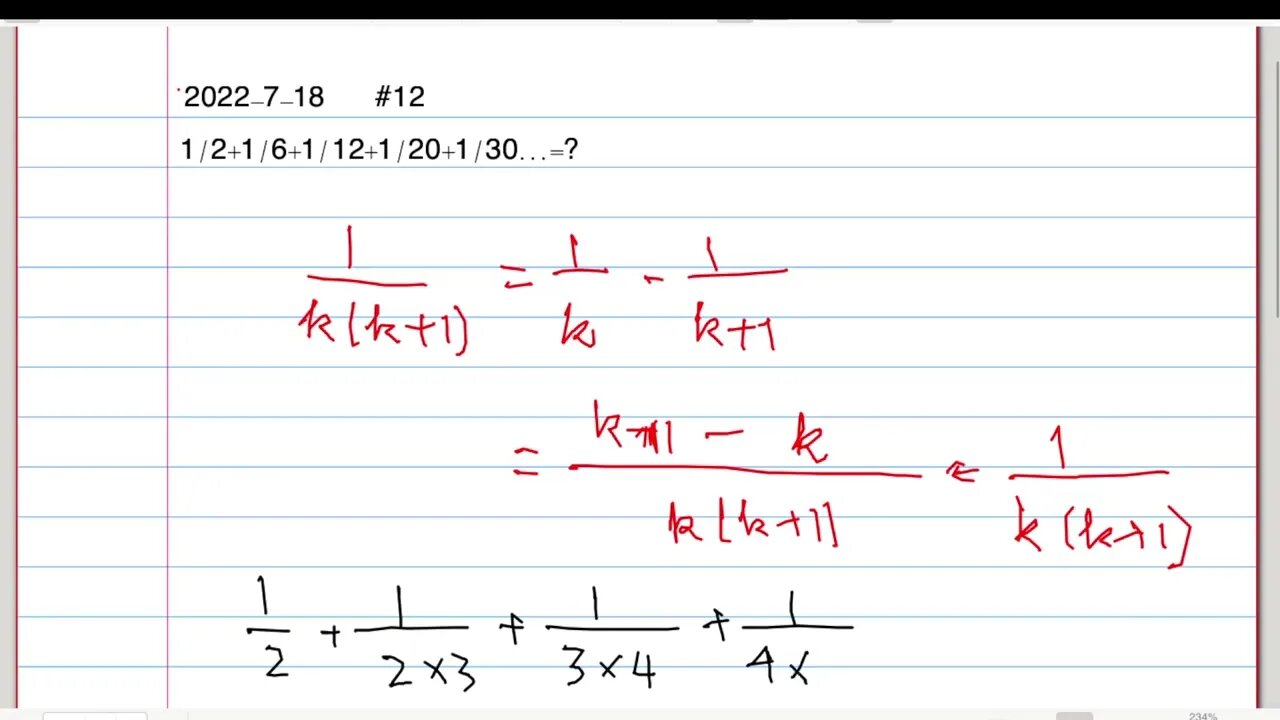 2022-7-18 #12
1/2+1/6+1/12+1/20+1/30...=?
1/k(k+1) = 1/k - 1/k+1
= k+1 - k/k(k+1) = 1/k(k+1)
1/2 + 1/2×3 + 1/3×4 + 1/4×
234%